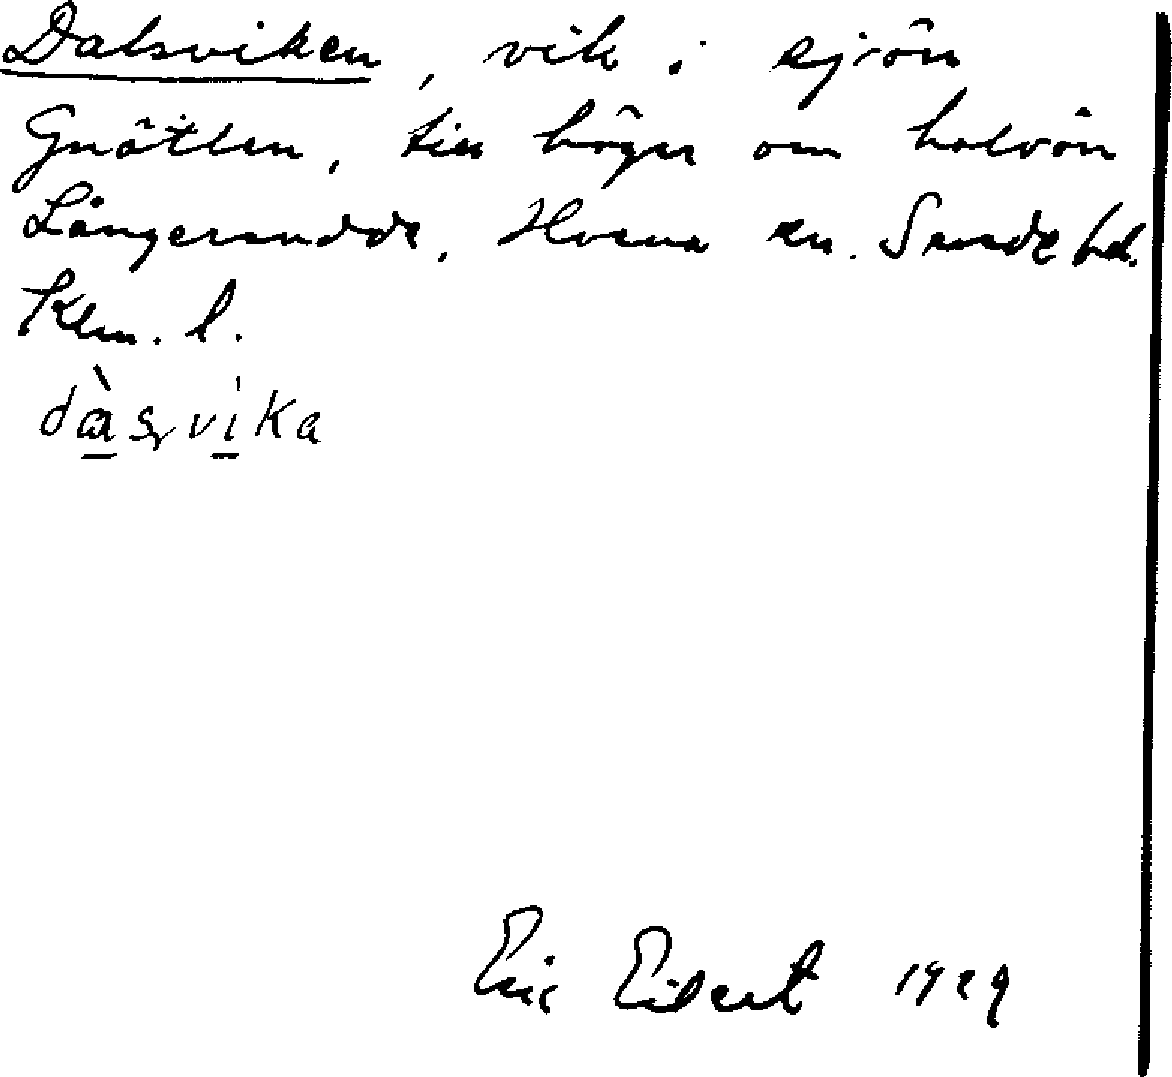 Dalsviken, vik i sjön
Gnötteln, till höger om halvön
Långerudde, Hvena sn. Sevede hd.
Klm. l.
dàsvika
Eric Eibert 1929